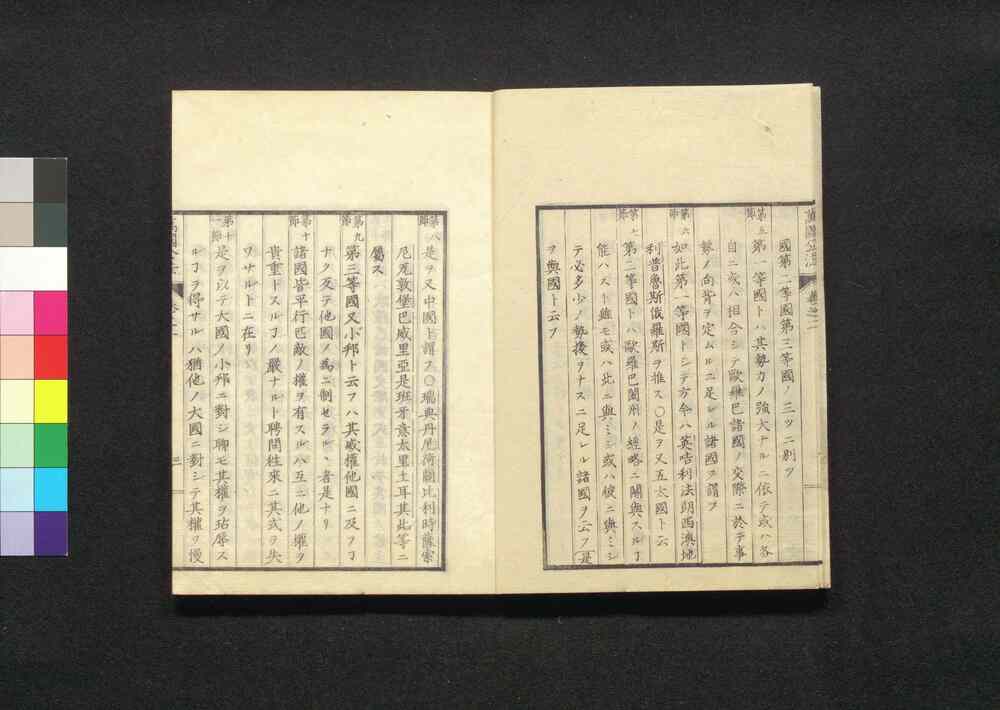 萬國公法 卷之二
國第二等國第三等國ノ三ツニ別ツ
第五節 第一等國トハ其勢力ノ強大ナルニ依テ或ハ各
自ニ或ハ相合シテ歐羅巴諸國ノ交際ニ於テ事
勢ノ向背ヲ定ムルニ足レル諸國ヲ謂フ
第六節 如此第一等國トシテ方今ハ英吉利法朗西澳地
利普魯斯俄羅斯ヲ推ス〇是ヲ又五大國ト云
第七節 第二等國トハ歐羅巴闔州ノ經略ニ關與スルヿ
能ハスト雖モ或ハ此ニ與ミシ或ハ彼ニ與ミシ
テ必多少ノ勢援ヲナスニ足レル諸國ヲ云フ是
ヲ與國ト云フ
第八節 是ヲ又中國ト謂フ〇瑞典丹尼荷蘭比利時薩索
尼瓦敦堡巴威里亞是班牙意太里土耳其此等ニ
屬ス
第九節 第三等國又小邦ト云フハ其威權他國ニ及フヿ
ナク反テ他國ノ爲ニ制セラルヽ者是ナリ
第十節 諸國皆平行匹敵ノ權ヲ有スルハ互ニ他ノ權ヲ
貴重トスルヿノ嚴ナルト聘問往來ニ其式ヲ失
ワサルトニ在リ
第十一節 是ヲ以テ大國ノ小邦ニ對シ聊モ其權ヲ玷辱ス
ルヿヲ得サルハ猶他ノ大國ニ對シテ其權ヲ慢
三